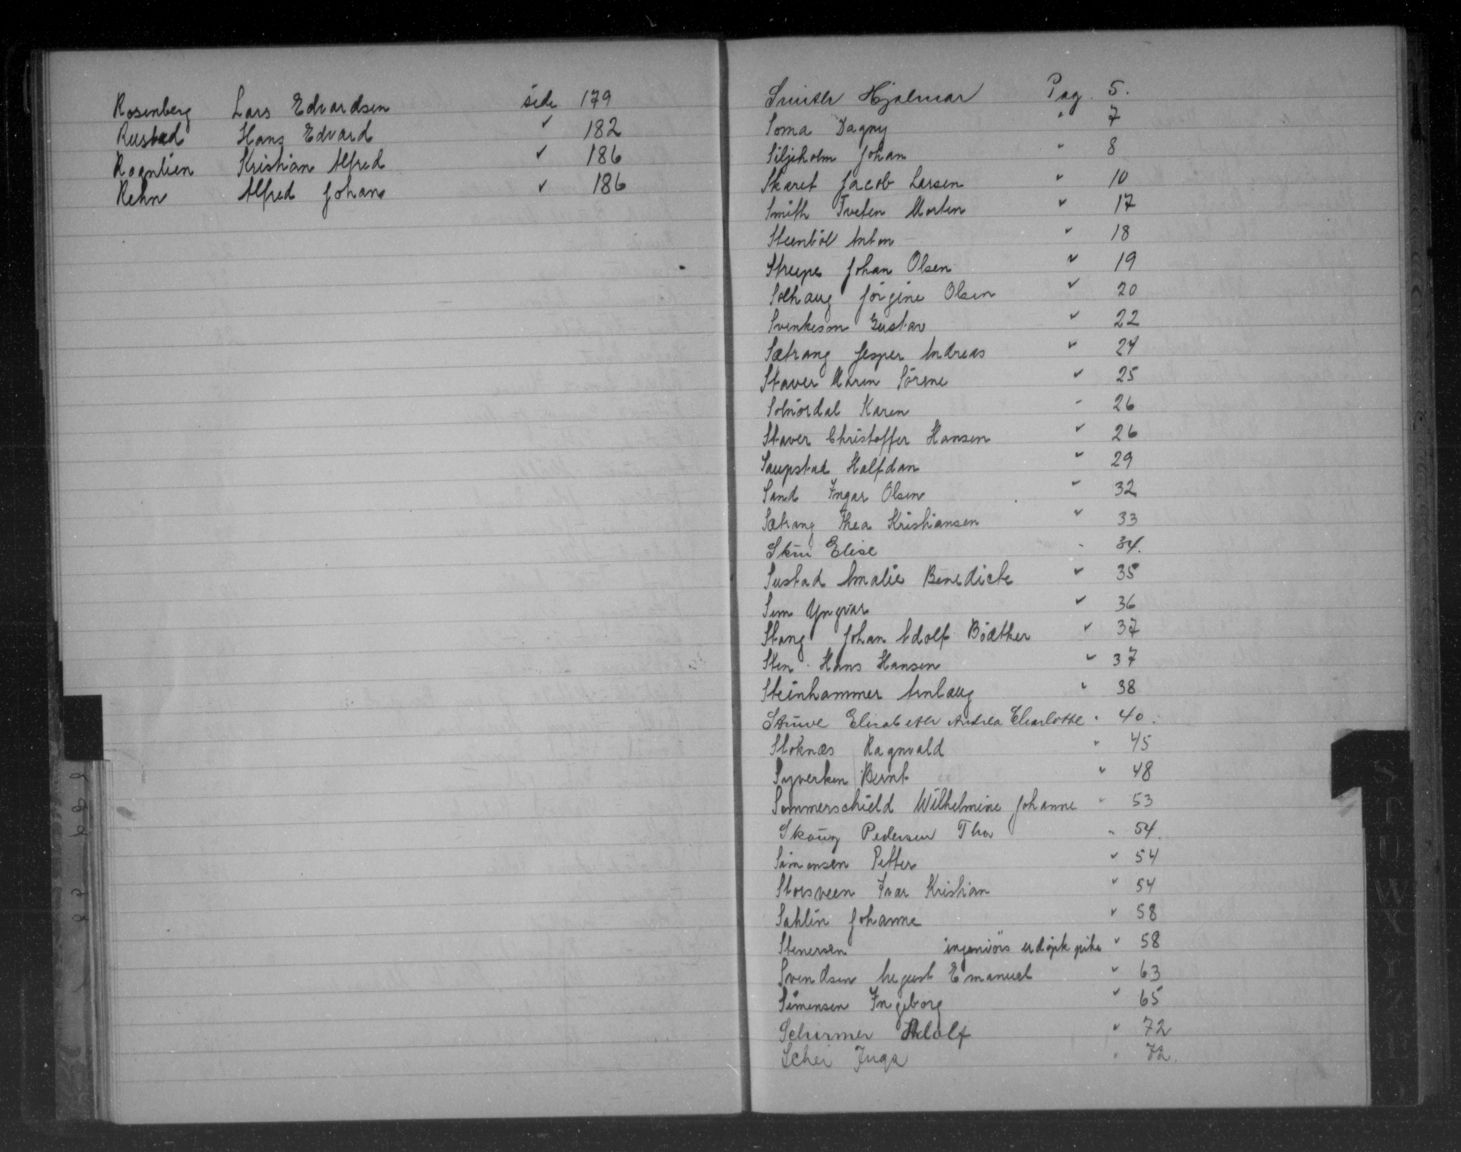 Rosenberg Lars Edvardsen side 179
Rustad Hans Edvard " 182
Rognlien Kristian Alfred " 186
Rehn Alfred Johan " 186
Smith Hjalmar Pag. 5.
Soma Dagny " 7
Siljeholm Johan " 8
Skaret Jacob Larsen " 10
Smith Tveten Morten " 17
Steenböl Anton " 18
Johan Olsen " 19
Solhaug Jörgine Olsen " 20
Svenkeson Gustav " 22
Sætrang Jesper Andreas " 24
Staver Maren Sörene " 25
Solnördal Karen " 26
Staver Christoffer Hansen " 26
Saupstad Halfdan " 29
Sand Ingar Olsen " 32
Sætrang Thea Kristiansen " 33
Elise " 34.
Sustad Amalie Benedicte " 35
Sem Yngvar " 36
Stang Johan Adolf Bödtker " 37
Sten Hans Hansen " 37
Steinhammer Annlaug " 38
Struve Elisabeth Andrea Charlotte " 40.
Stoknæs Ragnvald " 45
Syverken Bernt " 48
Sommerschield Wilhelmine Johanne " 53
Skoug Pedersen Thor " 54.
Simensen Petter " 54
Storsveen Ivar Kristian " 54
Sahlin Johanne " 58
Stenersen ingeniörs udöpt pike " 58
Svendsen August Emanuel " 63
Simensen Ingeborg " 65
Schirmer Adolf " 72
Schei Inga " 72.
S
T
U
W
X Y
Z